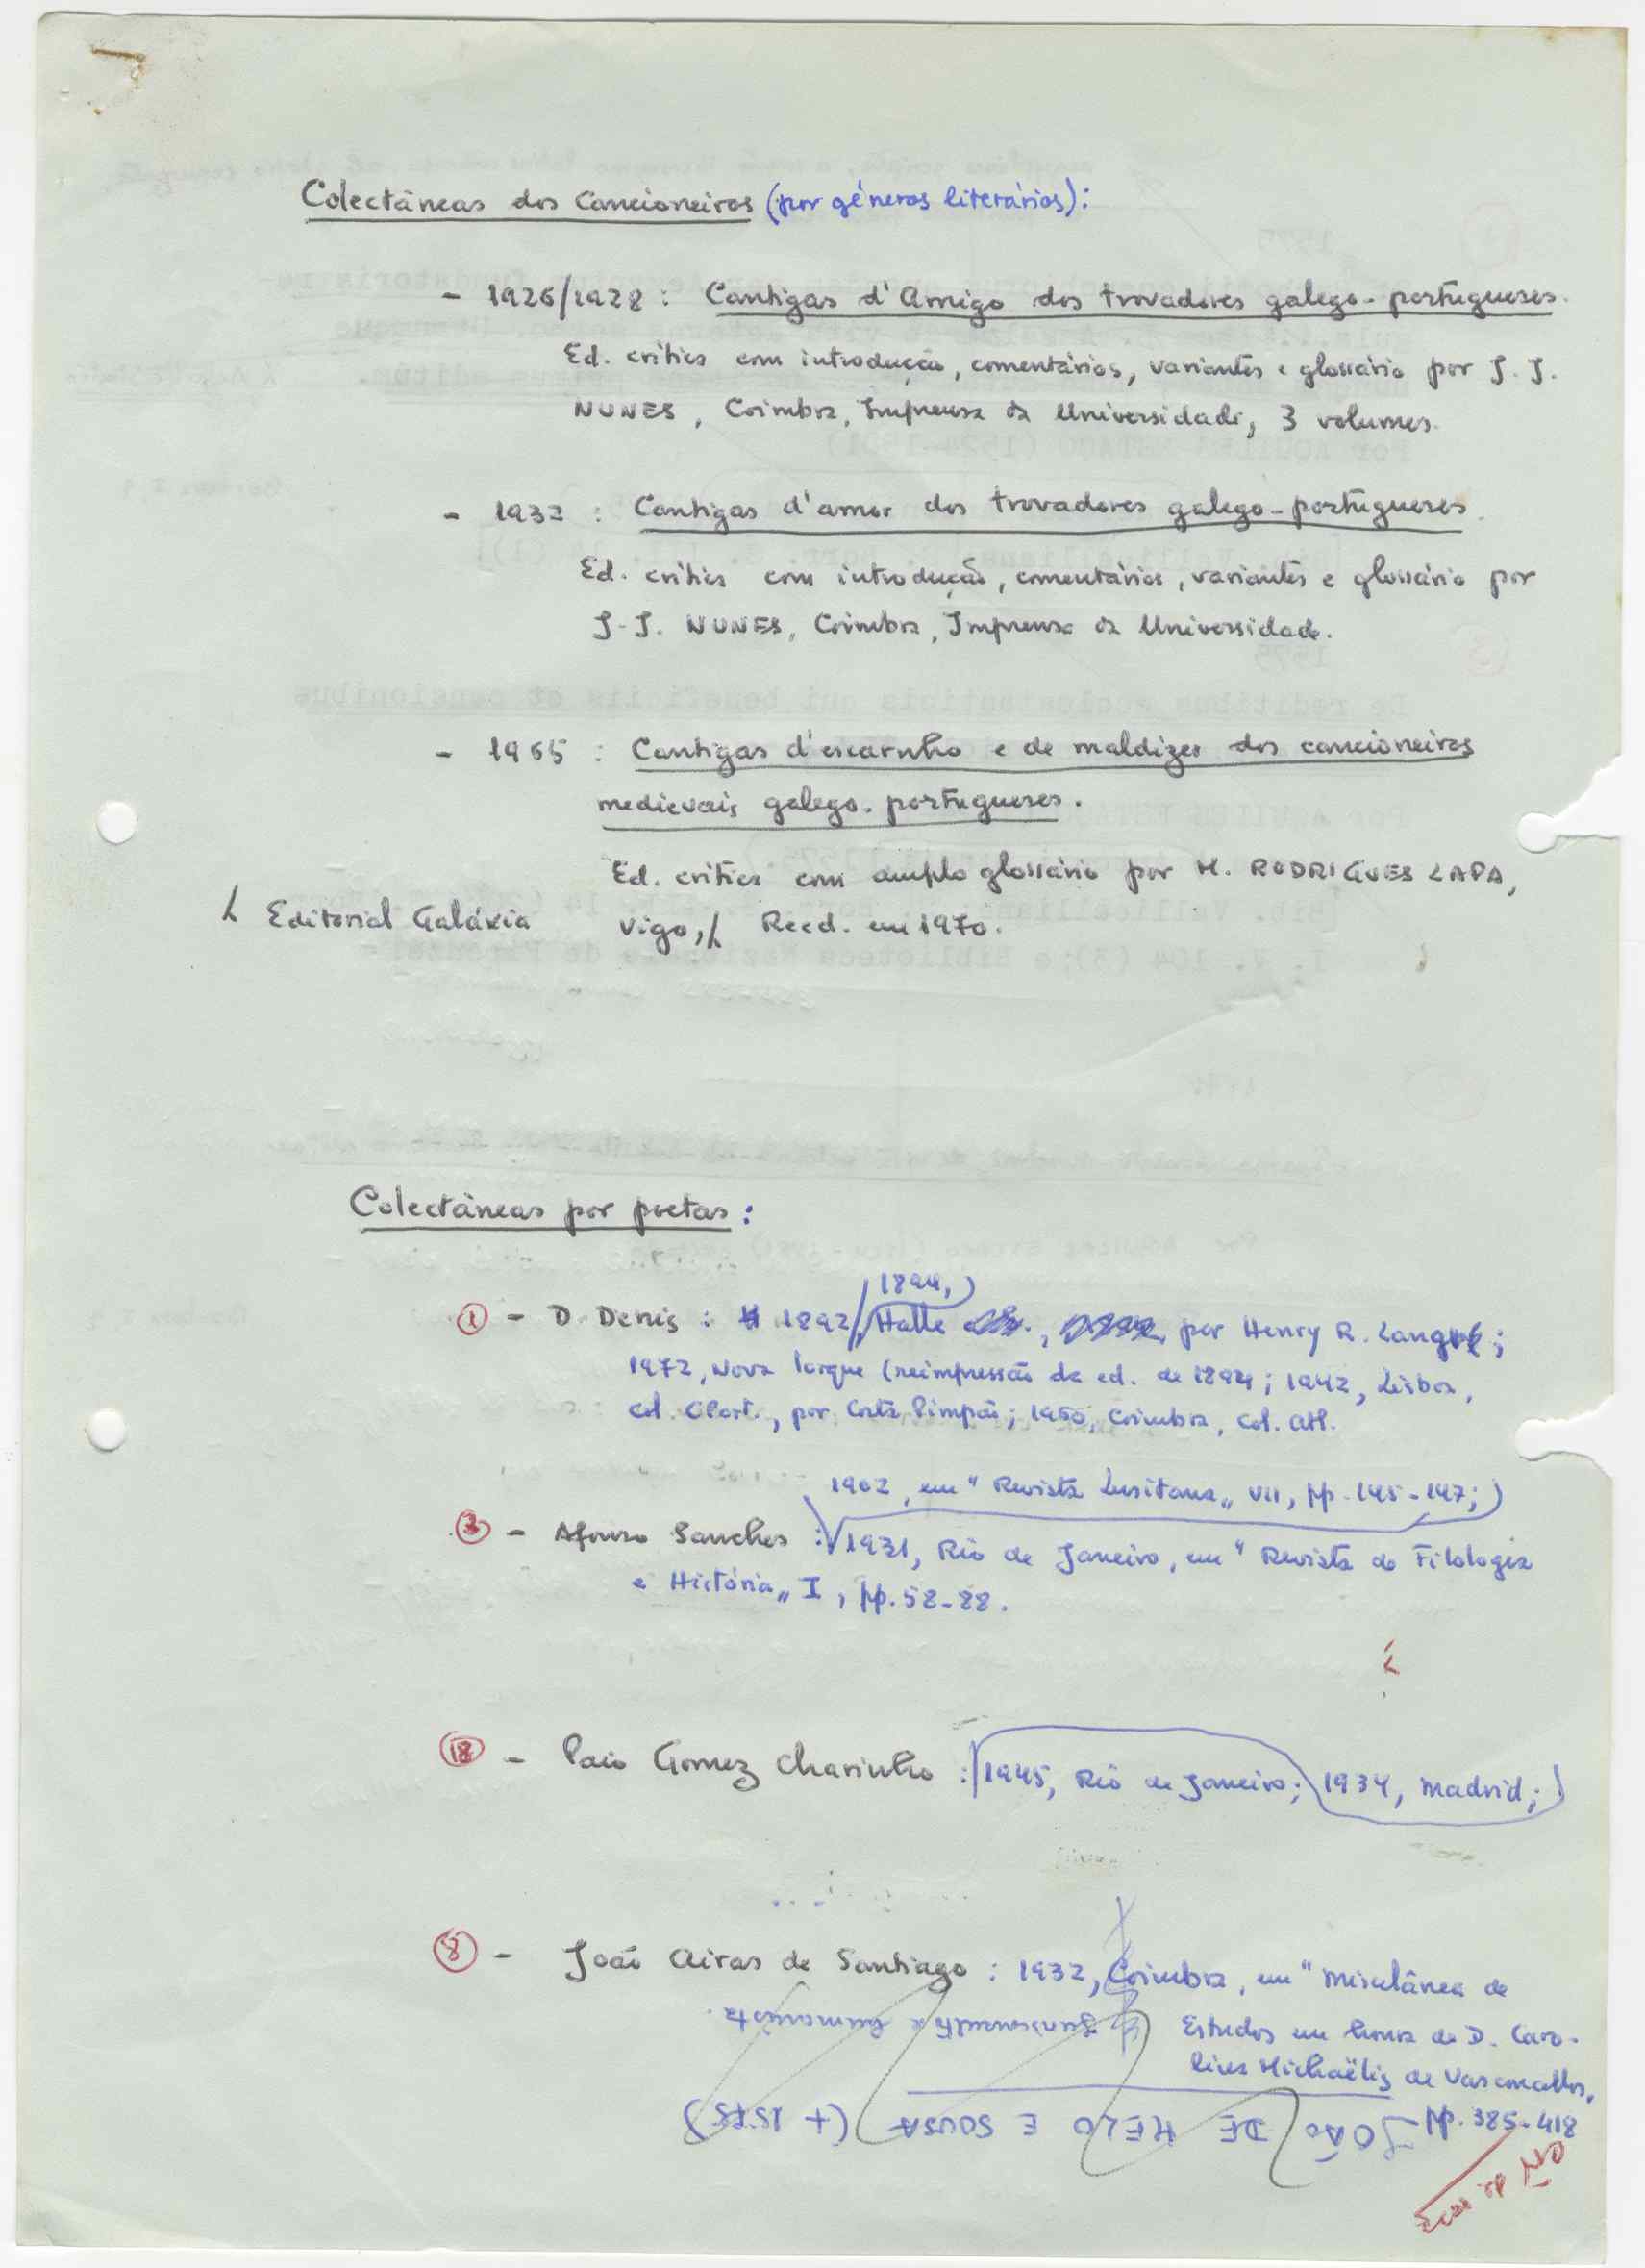 Colectâneas dos Cancioneiros (por géneros literários):
- 1926/1928 : Cantigas d'Amigo dos trovadores galego-portugueses.
Ed. crítica com introdução, comentários, variantes e glossário por J. J.
NUNES, Coimbra, Imprensa da Universidade, 3 volumes.
- 1932 : Cantigas d'amor dos trovadores galego-portugueses.
Ed. crítica com introdução, comentários, variantes e glossário por
J-J. NUNES, Coimbra, Imprensa da Universidade.
- 1965 : Cantigas d'escarnho e de maldizer dos cancioneiros
medievais galego-portugueses.
Ed. crítica com amplo glossário por M. RODRIGUES LAPA,
Editorial Galáxia
Vigo, Reed. em 1970.
Colectâneas por poetas :
1894,
1 - D. Denis : 1892 / Halle, por Henry R. Lang ;
1972, Nova Iorque (reimpressão da ed. de 1894; 1942, Lisboa,
Col. CPort., por Costa Pimpão; 1960, Coimbra, Col. Atl.
1902, em "Revista Lusitana" VII, pp. 145-147;
2 - Afonso Sanches : 1931, Rio de Janeiro, em "Revista de Filologia
e História" I, pp. 58-88.
18 - Paio Gomez Charinho : 1945, Rio de Janeiro; 1934, Madrid;
8 - João Airas de Santiago : 1932, Coimbra, em "Miscelânea de
Estudos em honra de D. Caro-
lina Michaëlis de Vasconcellos,
pp. 385-418
Jurisconsulto e humanista.
JOÃO DE MELO E SOUSA (+ 1575)